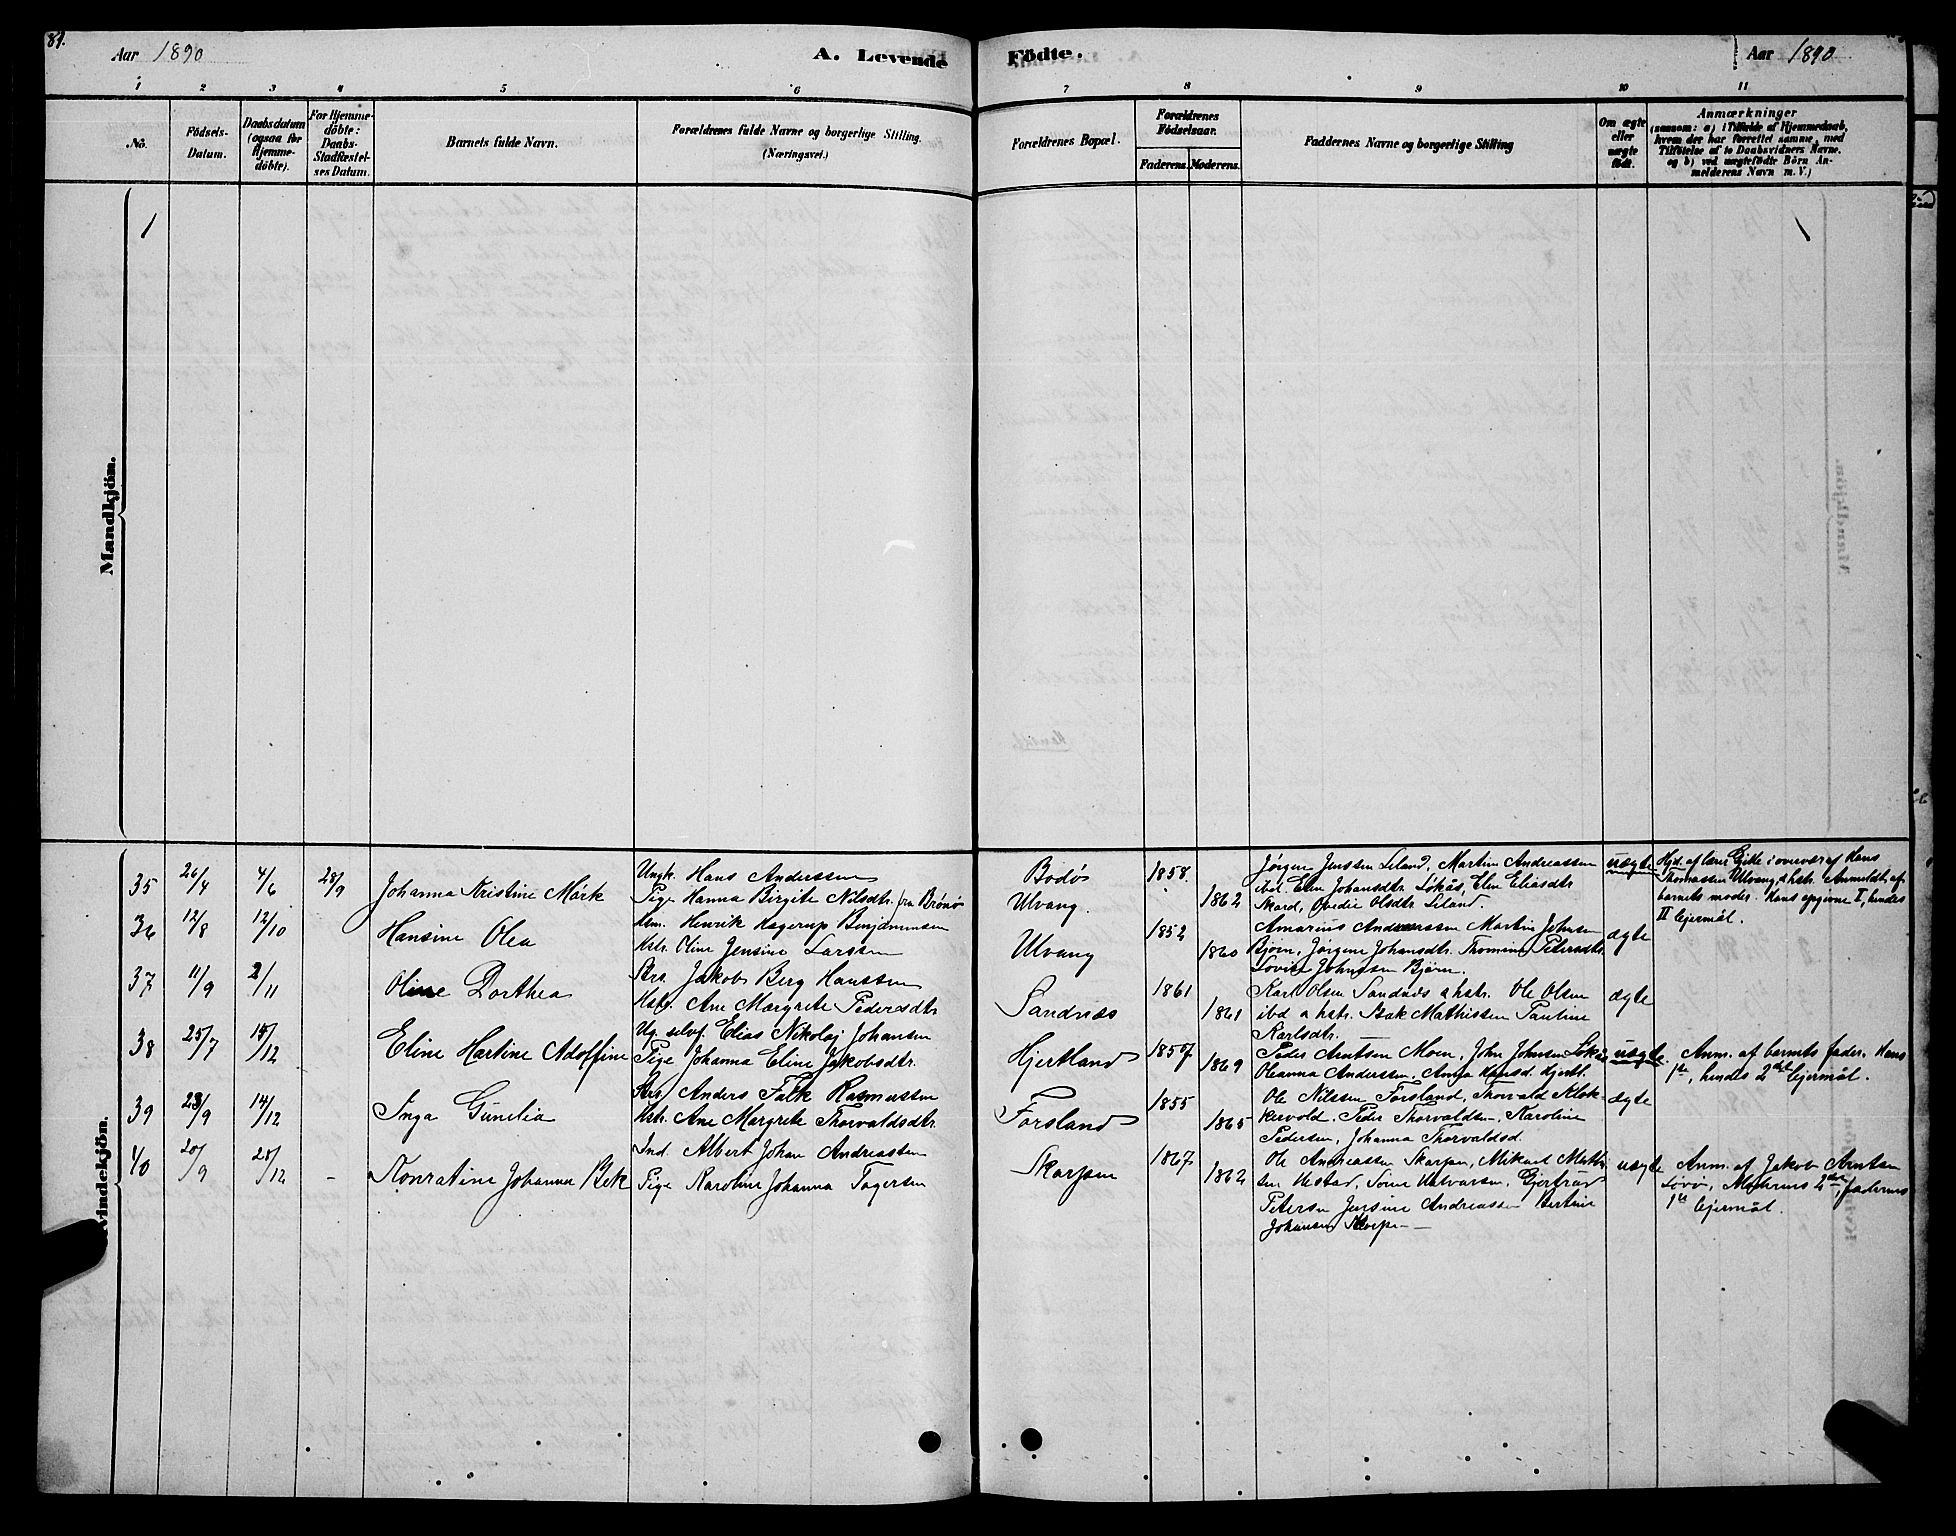 81.
Aar 1890
A. Levende
Födte.
Aar 1890.
1 2 3 4 5 6 7 8 9 10 11
No.
Födsels-
Datum.
Daabsdatum
(ogsaa for
Hjemme-
döbte).
For Hjemme-
döbte:
Daabs-
Stadfæstel-
ses Datum.
Barnets fulde Navn.
Forældrenes fulde Navne og borgerlige Stilling.
(Næringsvei.)
Forældrenes Bopæl.
Forældrenes
Födselsaar.
Faderens. Moderens.
Faddernes Navne og borgerlige Stilling
Om ægte
eller
uægte
födt.
Anmærkninger
(saasom: a) i Tilfælde af Hjemmedaab,
hvem der har forrettet samme, med
Tilföielse af to Daabsvidners Navne.
og b) ved uægtefödte Börn An-
melderens Navn m. V.)
Mandkjön.
Kvindekjön.
35 26/4 4/6 28/9
Johanna Kristine Mörk
Ungk. Hans Anderssen
Pige Hanna Birgite Nilsdtr. fra Brönö
Bodö
Ulvang.
1858.
1862
Jørgen Jenssen Leland, Martin Andreassen
ibd. Elen Johansdtr. Lökås, Elen Eliasdtr
Skard, Ovedie Olsdtr. Leland.
uægte
Hjd. af lærer Gjitte i overvær af Hans
Thomassen Ulvang & hstr. Anmeldt af
barnets moder. Hans opgivne I, hendes
II lejermål.
36 12/8 12/10
Hansine Olea
Hm. Henrik Hagerup Benjaminsen
Hstr. Oline Jensine Larssen
Ulvang
1852
1860
Amarius Andreassen Martin Johnsen
Bjørn, Jørgine Johansdtr. Thomine Petersdtr.
Lovise Johnssen Bjørn.
ægte
37 11/9 2/11
Oline Dorthea
Strs. Jakob Berg Hanssen
Hstr. Ane Margrete Pedersdtr
Sandnæs
1861
1861
Karl Olsen Sandnæs & hstr. Ole Olsen
ibd & hstr. Bak Mathissen Pauline
Karlsdtr.
ægte
38 25/7 15/12
Eline Hartine Adolfine
Ug. selvf. Elias Nikolaj Johansen
Pige Johanna Eline Jakobsdtr.
Hjertland
1857
1869
Peder Arntsen Moen, John Johnsen Lökås
Oleanna Anderssen, Anna Hansd. Hjertl.
uægte.
Anm. af barnets fader. Hans
1ste, hendes 2det lejermål.
39 23/9 14/12
Inga Gunelia
Strs. Anders Falk Rasmussen
Hstr. Ane Margrete Thorvaldsdtr.
Forsland
1855
1865
Ole Nilssen Forsland, Thorvald Klok-
kervold. Peder Thorvaldsen, Karoline
Pedersen, Johanna Thorvaldsd.
ægte
40 20/9 28/12 -
Konratine Johanna Bek
Ind. Albert Johan Andreassen
Pige Karoline Johanna Tagersen
Skarpen
1867
1862
Ole Andreassen Skarpen, Mikael Matti-
sen Hestad, Sorine Halvorsen, Gjertrud
Petersen Jensine Andreassen Bertine
Johansen Skarpen
uægte
Anm. af Jakob Arntsen
Lövö, Moderens 2det, faderens
1ste lejermål.